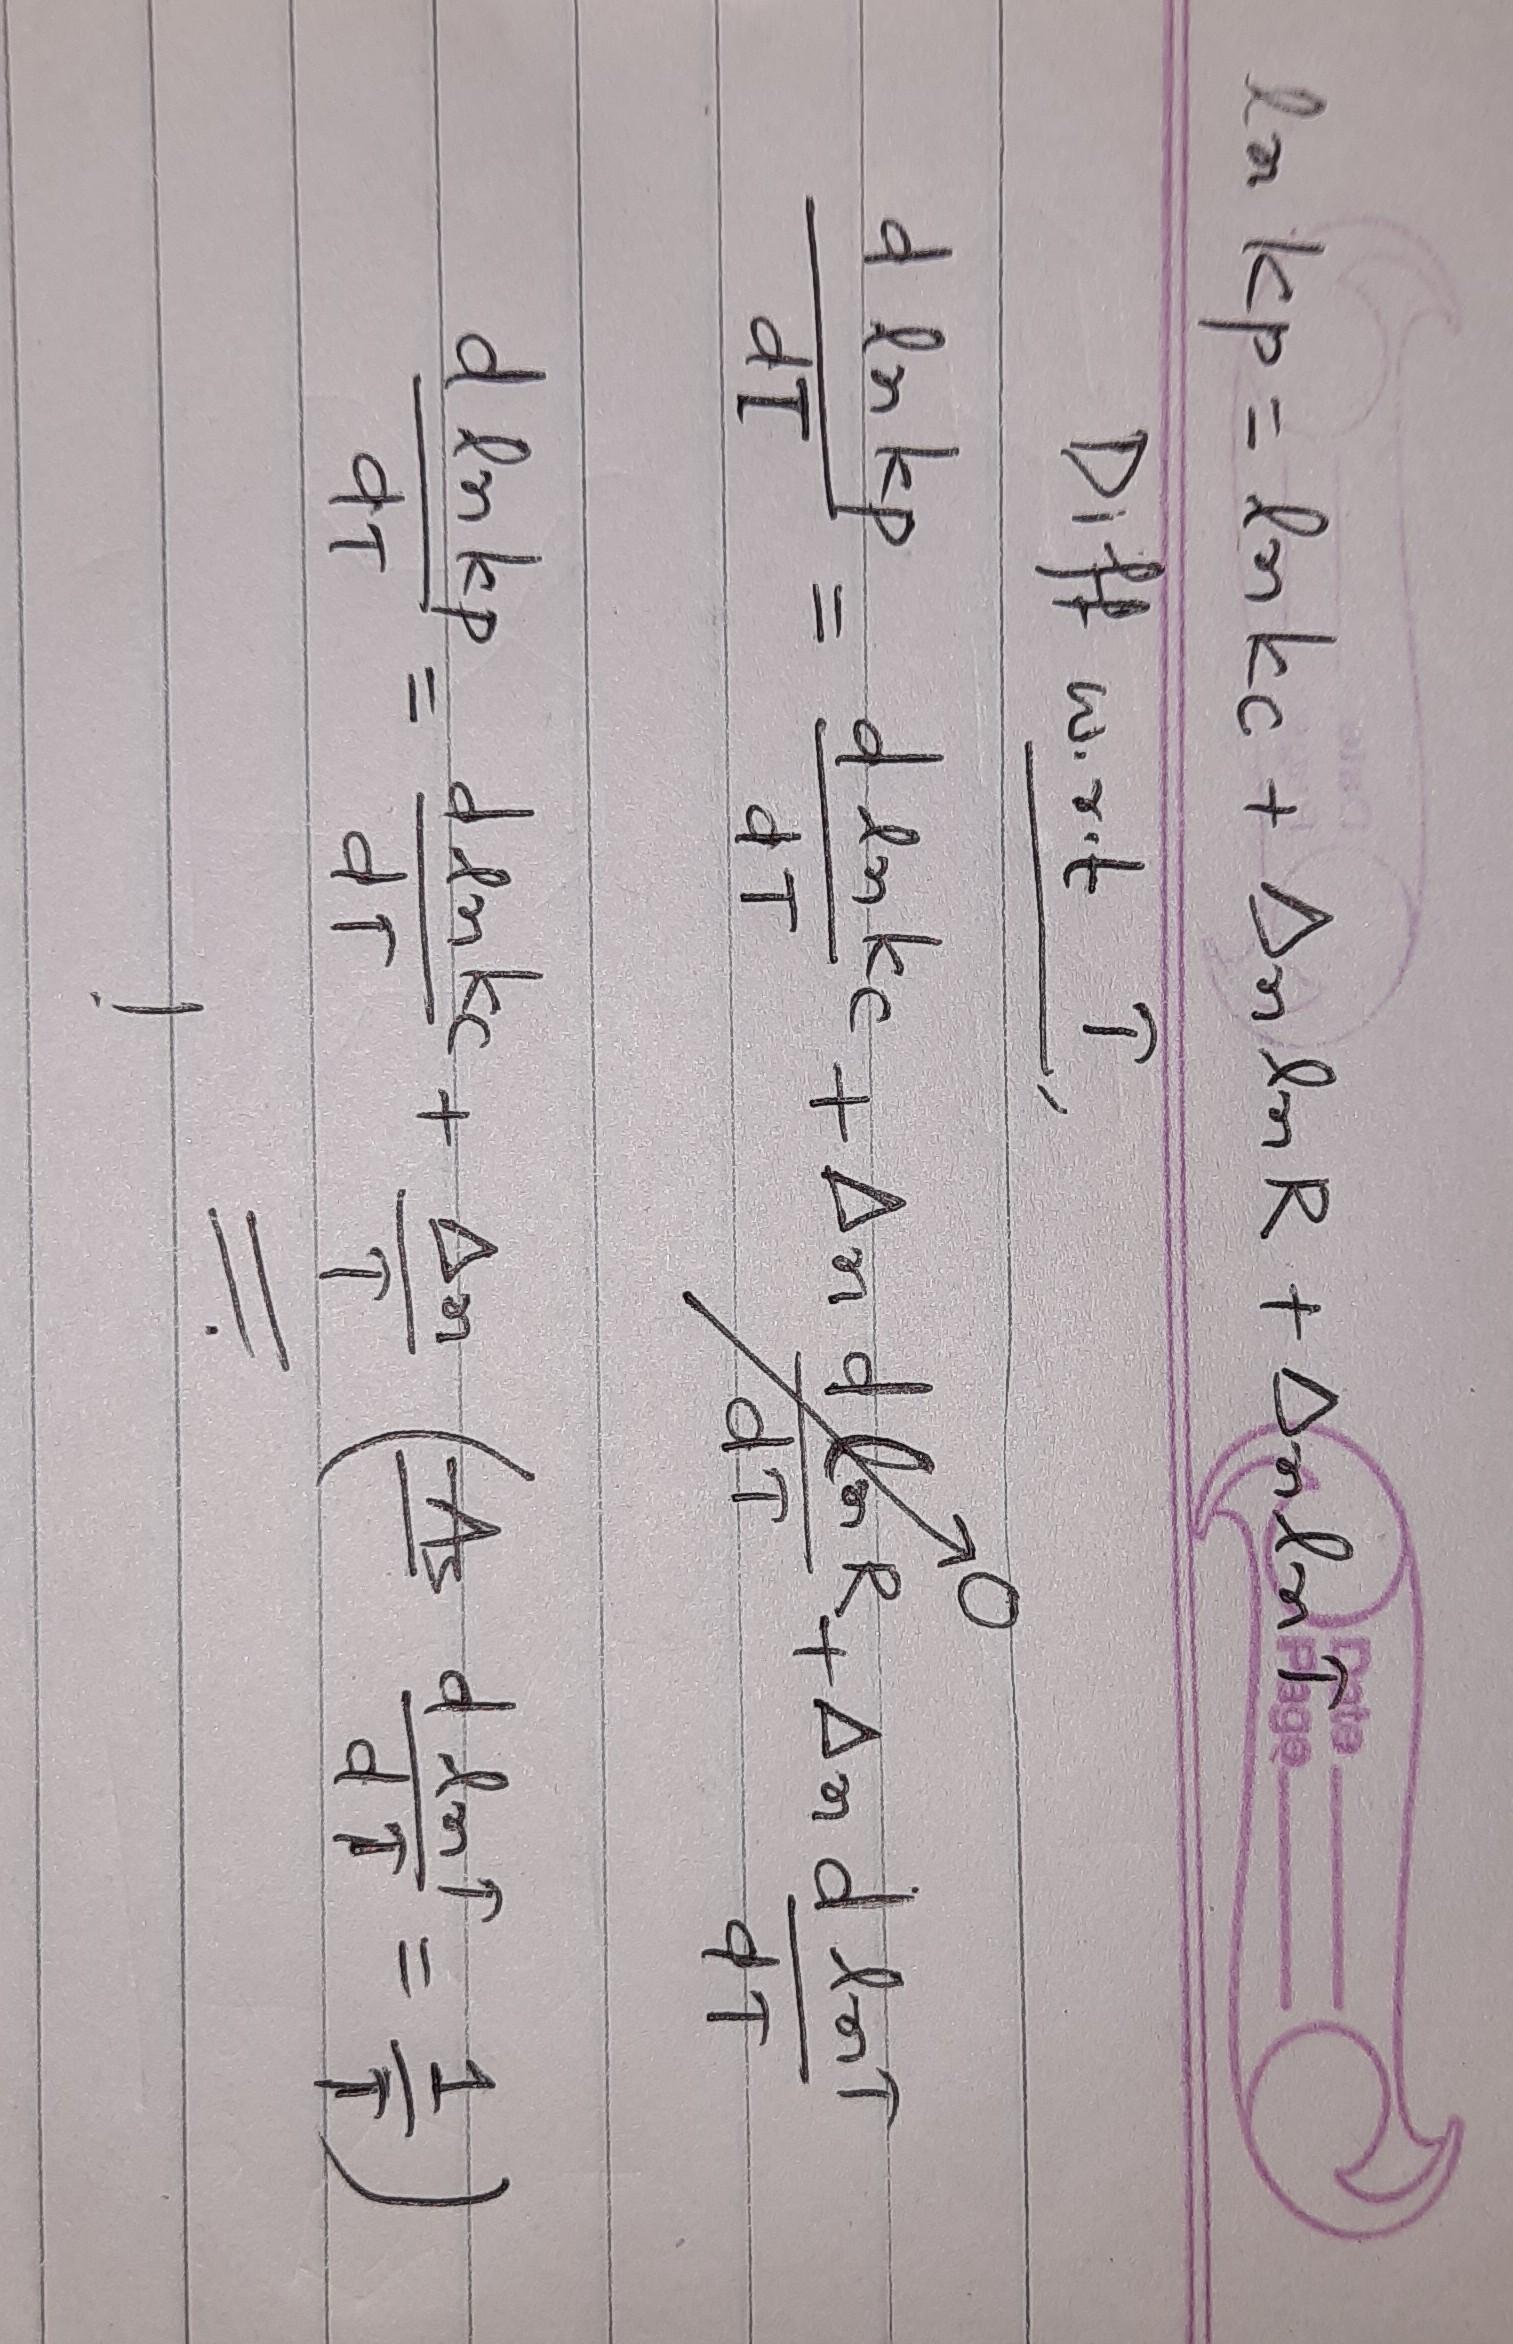 Date
Page
ln kp = ln kc + Δn ln R + Δn ln T
Diff w.r.t T,
d ln kp / dT = d ln kc / dT + Δn d ln R / dT → 0 + Δn d ln T / dT
d ln kp / dT = d ln kc / dT + Δn / T (As d ln T / dT = 1 / T)